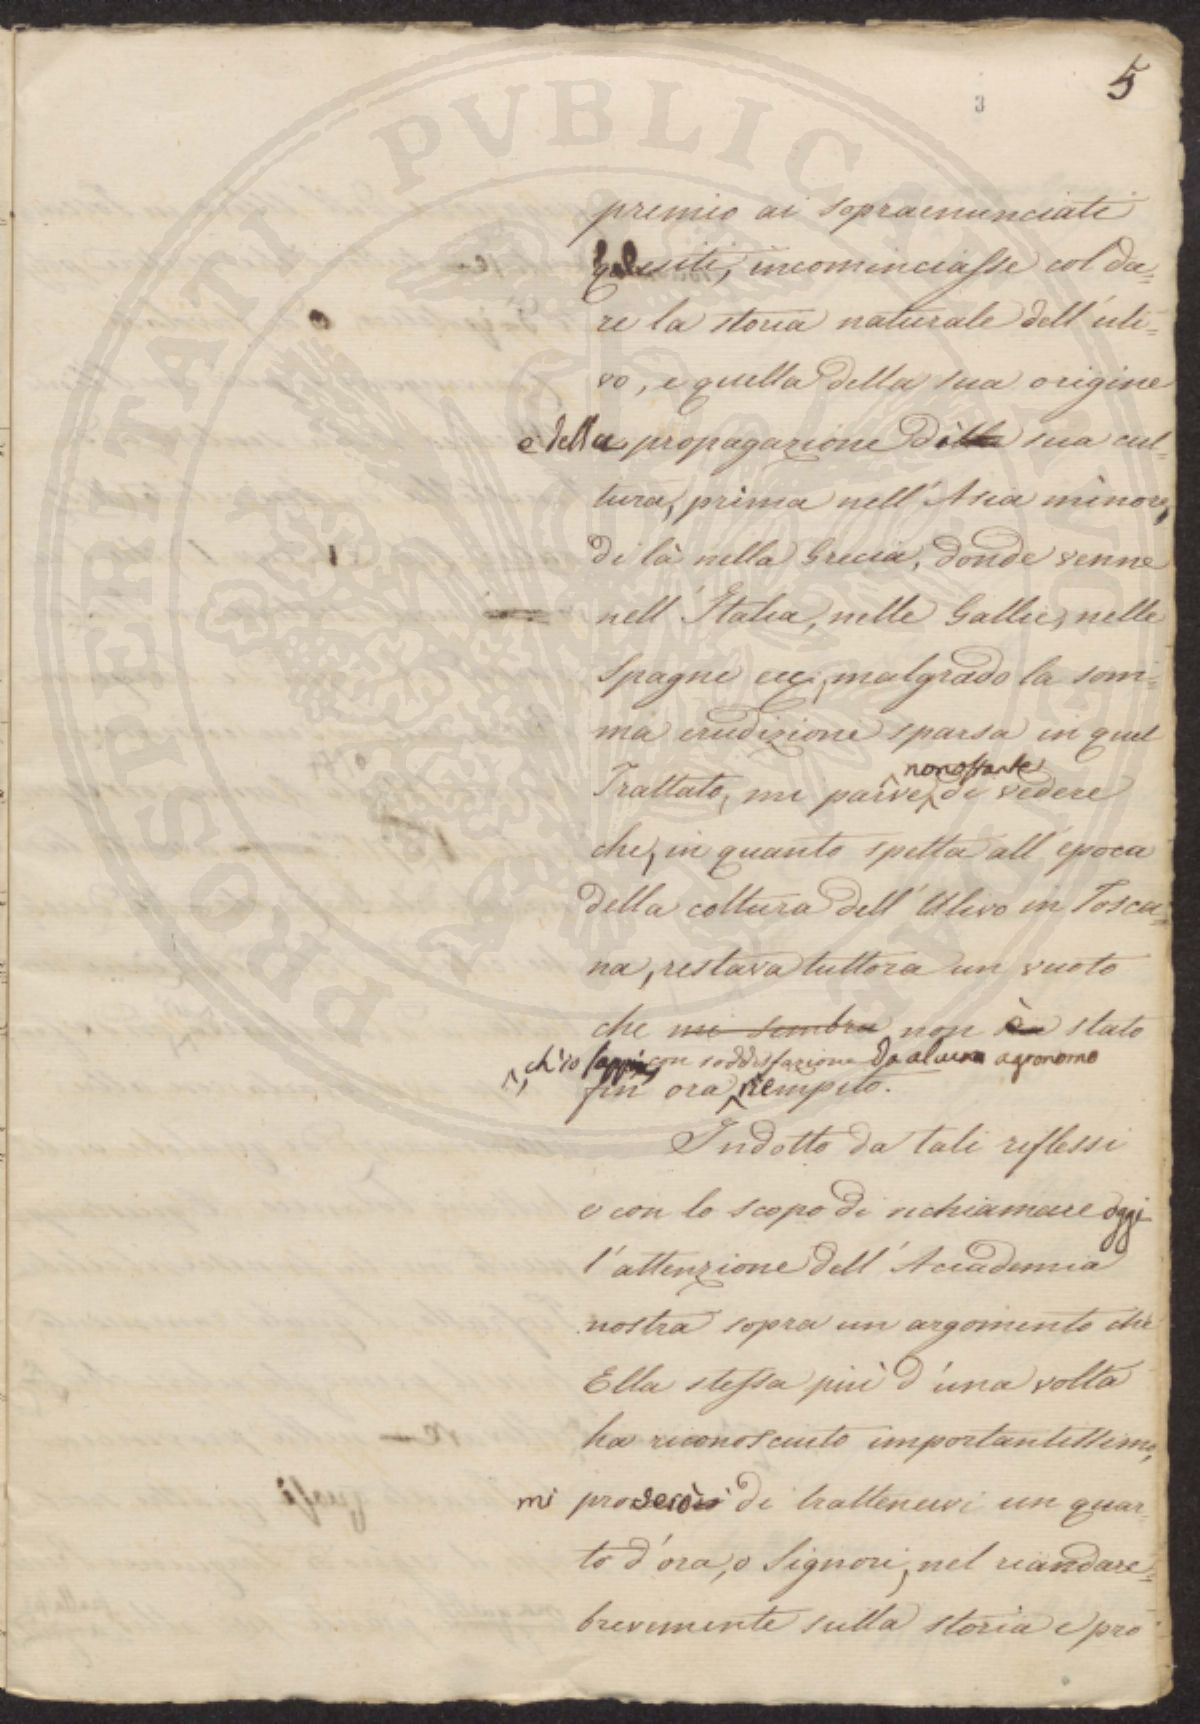 5
3
premio ai sopraenunciati
quesiti, incominciasse col da=
re la storia naturale dell'uli=
vo, e quella della sua origine
e della propagazione della sua cul=
tura, prima nell'Asia minore,
di là nella Grecia, donde venne
nell'Italia, nelle Gallie, nelle
Spagne ecc, malgrado la som=
ma erudizione sparsa in quel
nonostante
Trattato, mi parve, di vedere
che, in quanto spetta all'epoca
della coltura dell'Ulivo in Tosca=
na, restava tuttora un vuoto
che me sembra non è stato
ch'io sappia, con soddisfazione da alcun agronomo
fin ora riempito.
Indotto da tali riflessi
e con lo scopo di richiamare oggi
l'attenzione dell'Accademia
nostra sopra un argomento che
Ella stessa più d'una volta
ha riconosciuto importantissimo,
mi di trattenervi un quar=
to d'ora, o Signori, nel riandare
brevemente sulla storia e pro
PROSPERITATI PVBLICAE AVGENDAE